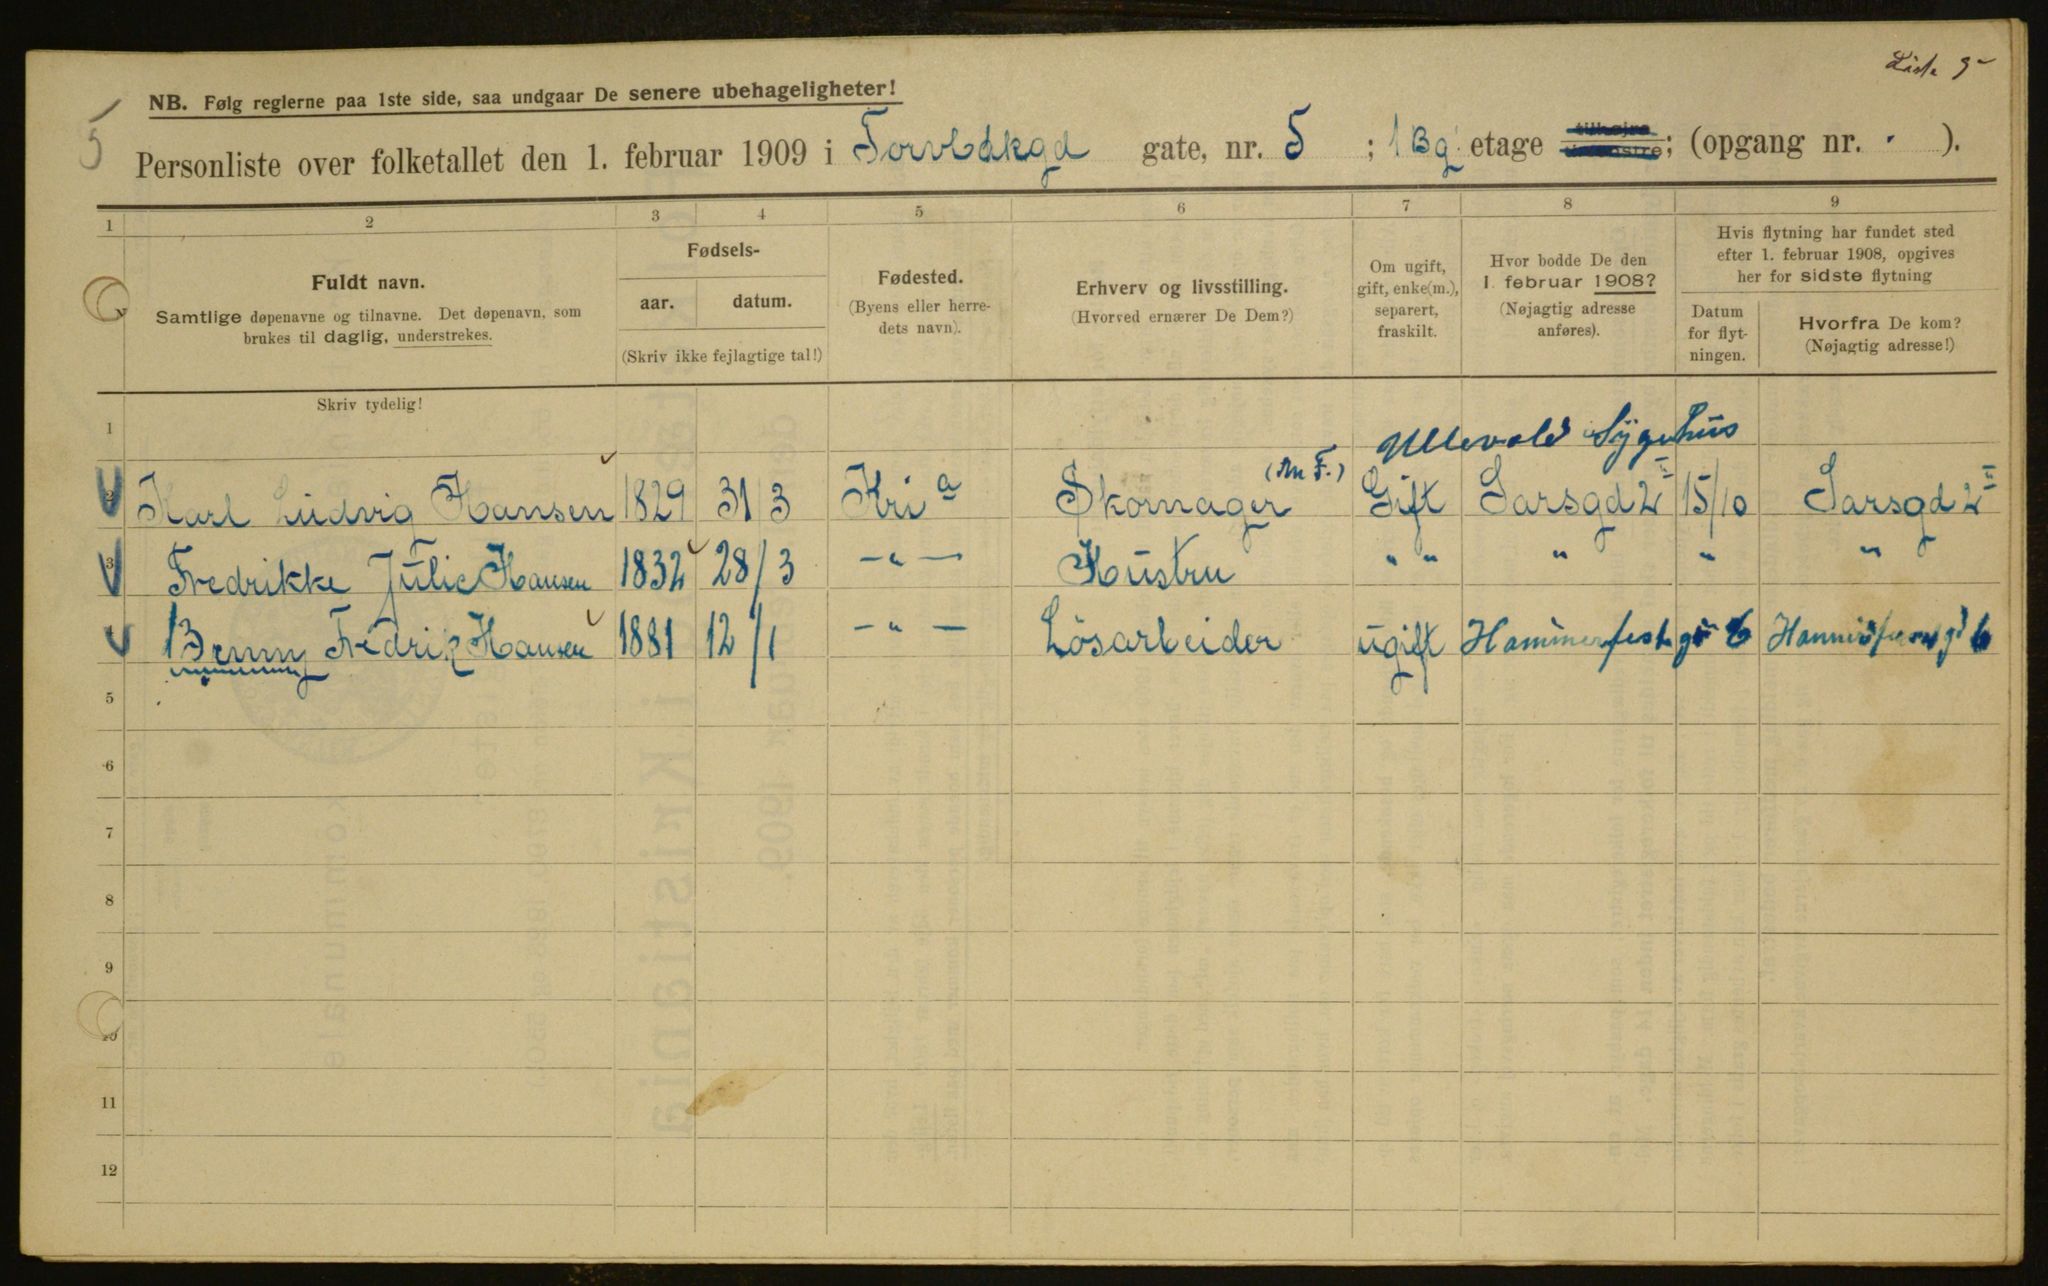 Liste 9
5
NB. Følg reglerne paa 1ste side, saa undgaar De senere ubehageligheter!
Personliste over folketallet den 1. februar 1909 i Torvbakgd gate, nr. 5 ; 1 Bg etage tilhøjre tilvenstre; (opgang nr. · ).
1 2 3 4 5 6 7 8 9
Fuldt navn.
Samtlige døpenavne og tilnavne. Det døpenavn, som
brukes til daglig, understrekes.
Fødsels-
aar. datum.
(Skriv ikke fejlagtige tal!)
Fødested.
(Byens eller herre-
dets navn).
Erhverv og livsstilling.
(Hvorved ernærer De Dem?)
Om ugift,
gift, enke(m.),
separert,
fraskilt.
Hvor bodde De den
1. februar 1908?
(Nøjagtig adresse
anføres).
Hvis flytning har fundet sted
efter 1. februar 1908, opgives
her for sidste flytning
Datum
for flyt-
ningen.
Hvorfra De kom?
(Nøjagtig adresse!)
Skriv tydelig!
1 Ullevold Sygehus
2 Karl Ludvig Hansen 1829 31/3 Kria Skomager (m F.) Gift Sarsgd 2 II 15/10 Sarsgd 2 II
3 Fredrikke Julie Hansen 1832 28/3 -"- Hustru " " " " "
Benny Fredrik Hansen 1881 12/1 -"- Løsarbeider ugift Hammerfestg 6 Hammerfestgd 6
5
6
7
8
9
10
11
12